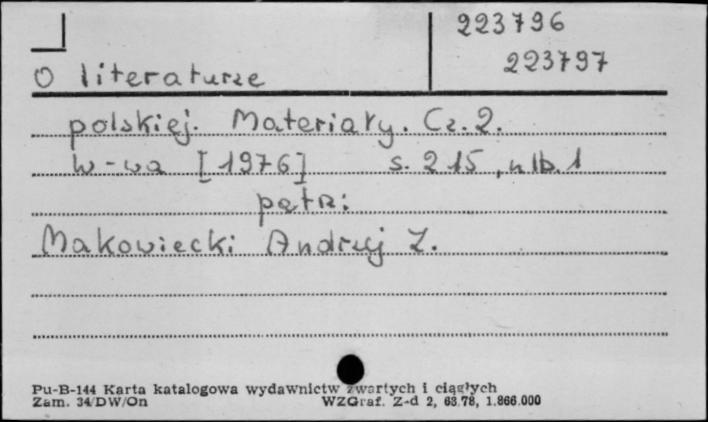 223796
223797
O literaturze
polskiej. Materiały. Cz. 2.
W-wa [1976] s. 215, nlb. 1
patrz:
Makowiecki Andrzej Z.
Pu-B-144 Karta katalogowa wydawnictw zwartych i ciągłych
Zam. 34/DW/On WZGraf. Z-d 2, 63.78, 1.866.000